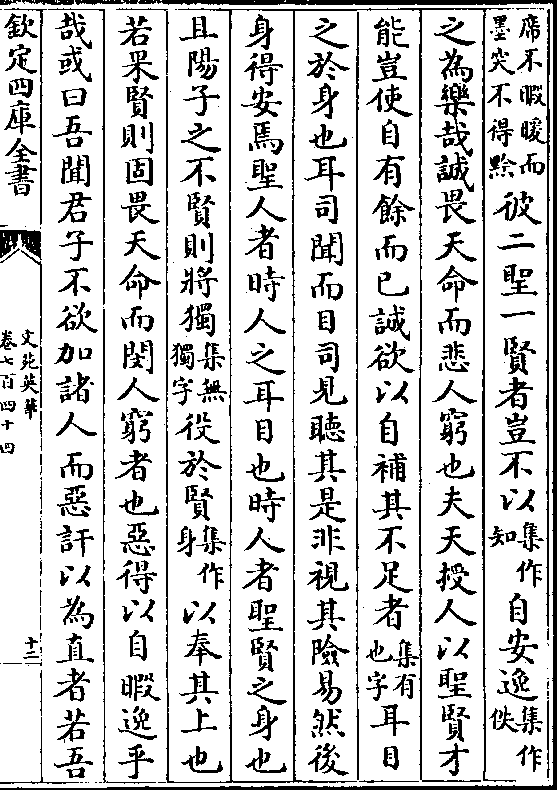 席不暇暖而墨突不得黔彼二聖一賢者豈不以集作知自安逸集作佚
之為樂哉誠畏天命而悲人窮也夫天授人以聖賢才
能豈使自有餘而已誠欲以自補其不足者集有也字耳目
之於身也耳司聞而目司見聽其是非視其險易然後
身得安焉聖人者時人之耳目也時人者聖賢之身也
且陽子之不賢則將獨集無獨字役於賢集作身以奉其上也
若果賢則固畏天命而閔人窮者也惡得以自暇逸乎
哉或曰吾聞君子不欲加諸人而惡訐以為直者若吾
欽定四庫全書
文苑英華
卷七百四十四
十三